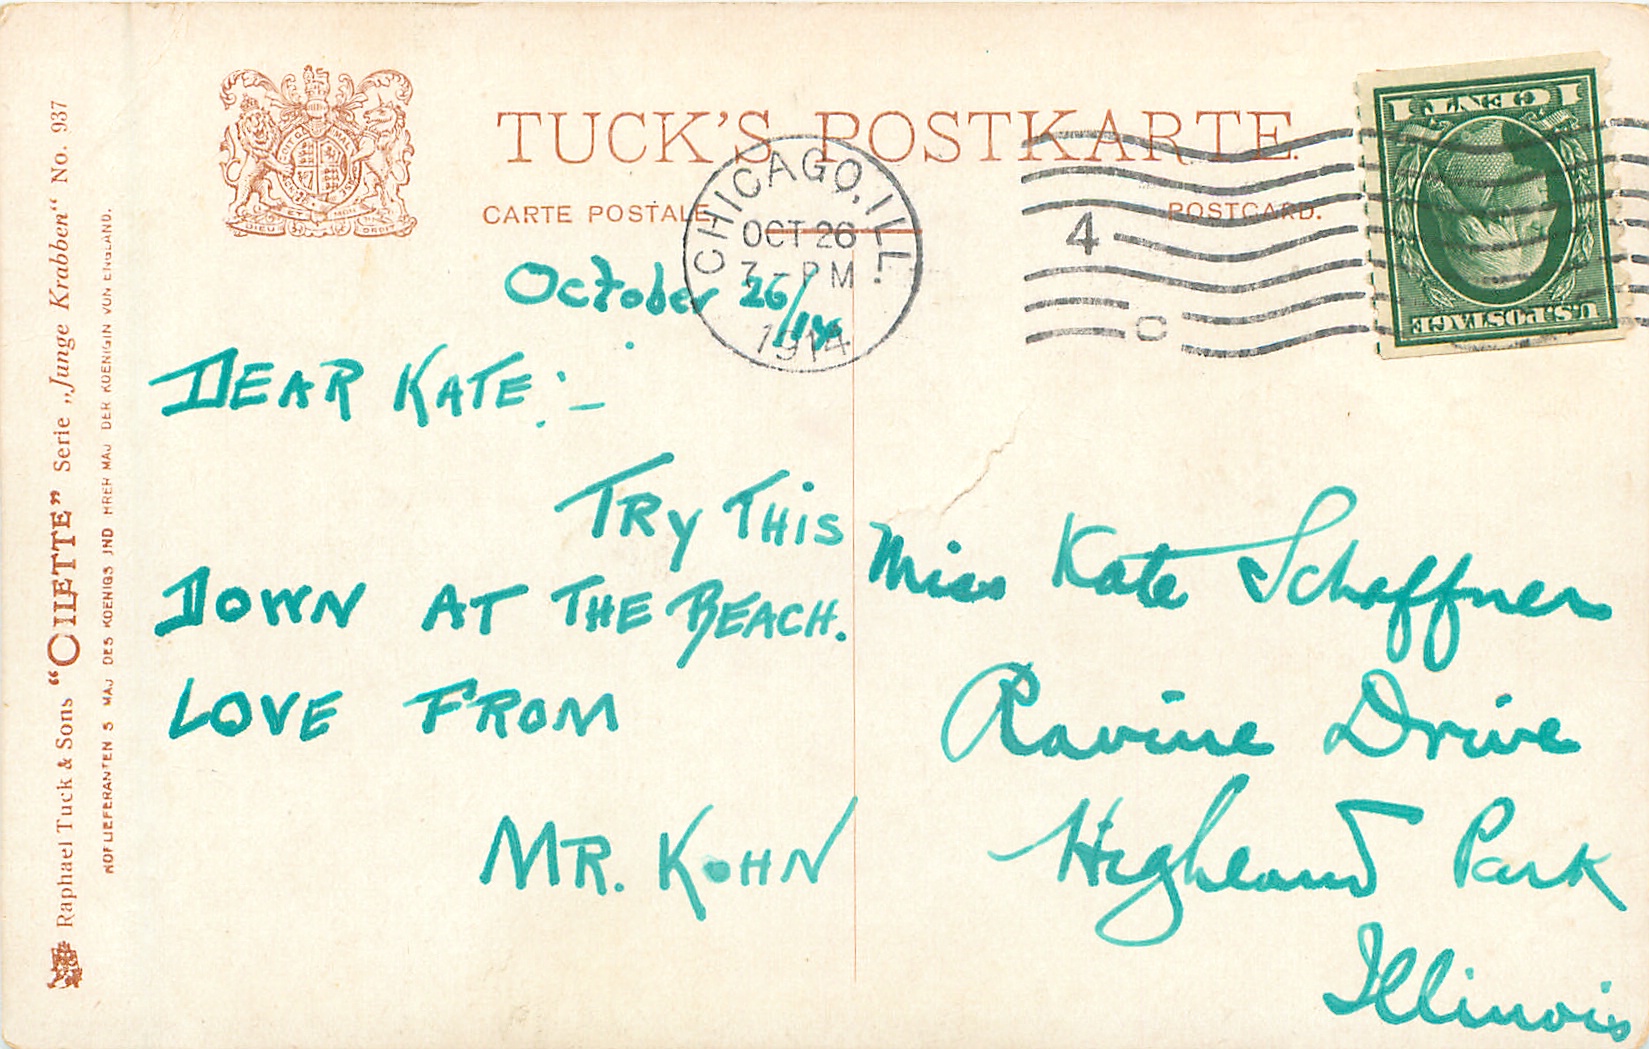 TUCK'S POSTKARTE.
CARTE POSTALE
POSTCARD.
CHICAGO, ILL.
OCT 26
7 - PM
1914
4
ONE CENT 1
U.S. POSTAGE
October 26/14
DEAR KATE:-
TRY THIS
DOWN AT THE BEACH.
LOVE FROM
MR. KOHN
Miss Kate Schaffner
Ravine Drive
Highland Park
Illinois
Raphael Tuck & Sons "OILETTE" Serie „Junge Krabben“ No. 937
HOFLIEFERANTEN S MAJ DES KOENIGS UND IHRER MAJ DER KOENIGIN VON ENGLAND.
DIEU ET MON DROIT